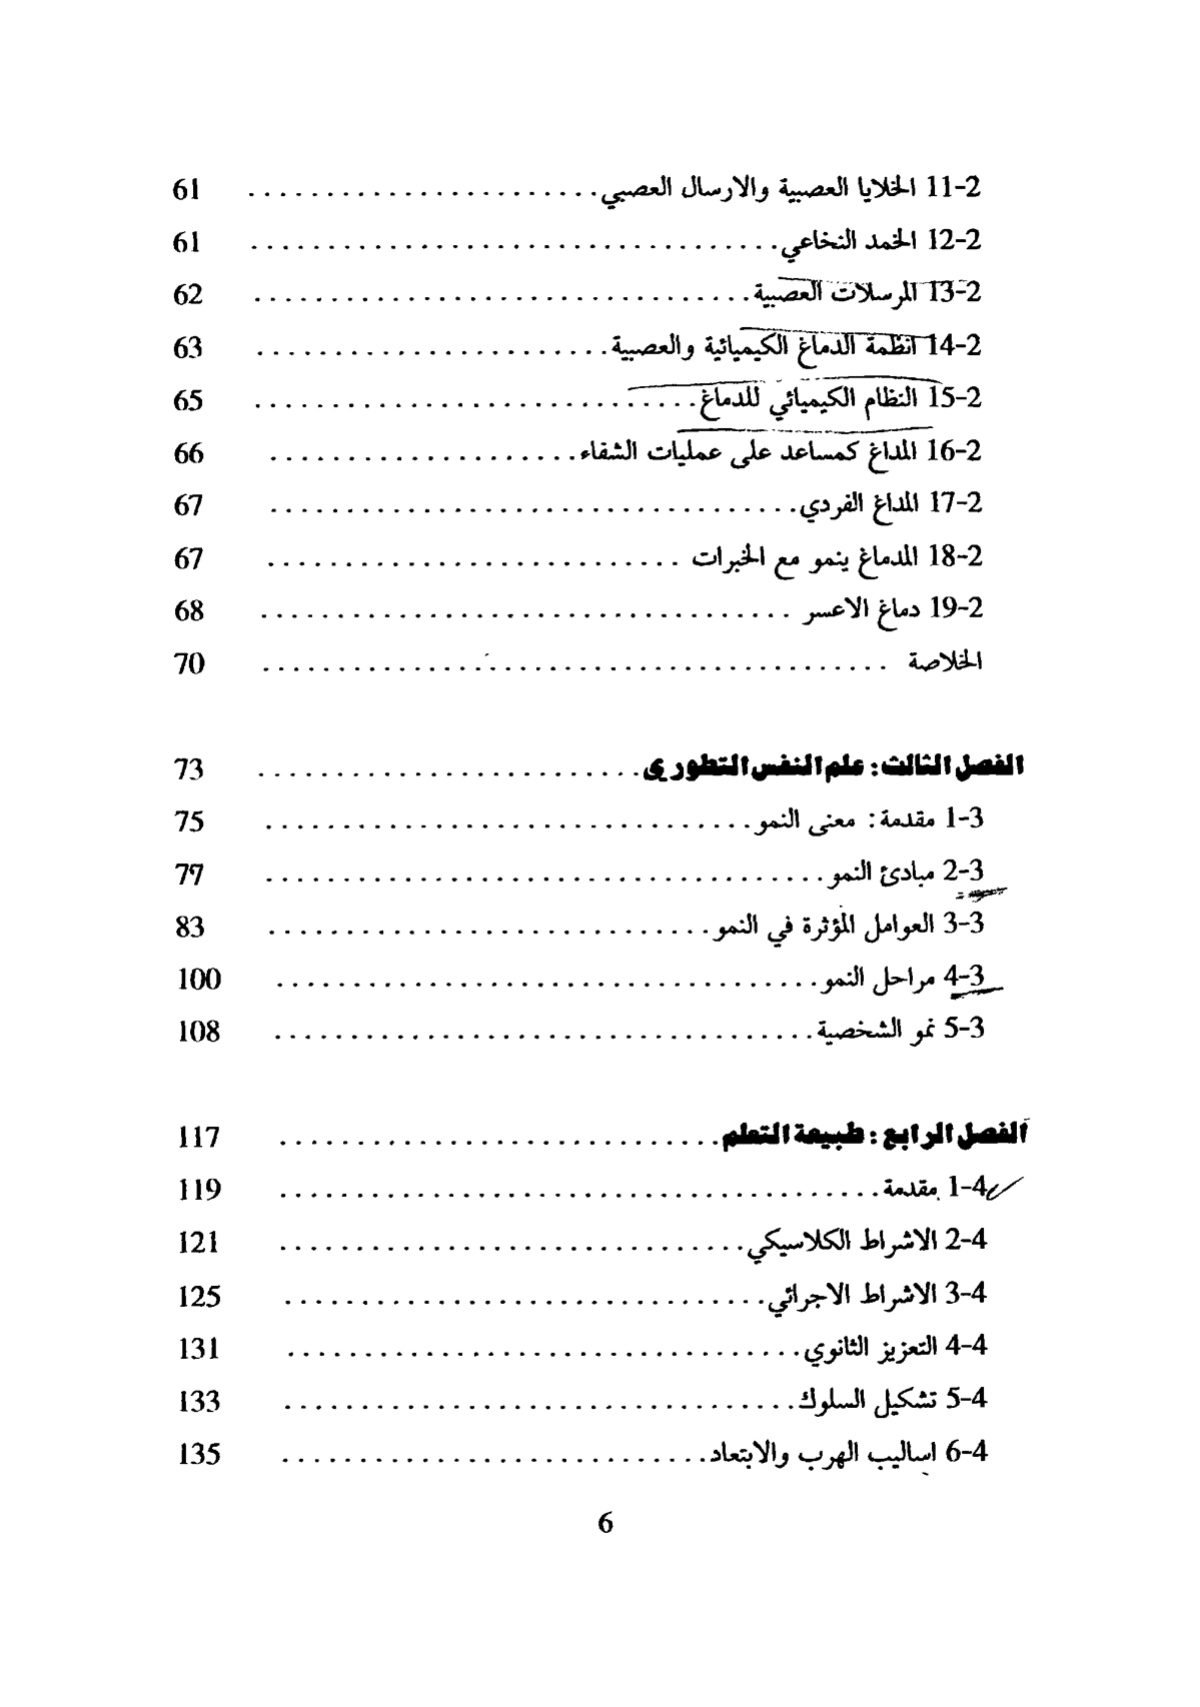 11-2 الخلايا العصبية والارسال العصبي ........................ 61
12-2 الخمد النخاعي ................................... 61
13-2 المرسلات العصبية ................................. 62
14-2 انظمة الدماغ الكيميائية والعصبية ........................ 63
15-2 النظام الكيميائي للدماغ ............................. 65
16-2 المداغ كمساعد على عمليات الشفاء ..................... 66
17-2 المداغ الفردي ................................... 67
18-2 المدماغ ينمو مع الخبرات ............................ 67
19-2 دماغ الاعسر ................................... 68
الخلاصة ......................................... 70
الفصل الثالث: علم النفس التطوري ......................... 73
1-3 مقدمة: معنى النمو ................................ 75
2-3 مبادئ النمو ..................................... 77
3-3 العوامل المؤثرة في النمو ............................. 83
4-3 مراحل النمو .................................... 100
5-3 نمو الشخصية .................................... 108
الفصل الرابع: طبيعة التعلم ............................. 117
1-4 مقدمة ........................................ 119
2-4 الاشراط الكلاسيكي ............................... 121
3-4 الاشراط الاجرائي ................................ 125
4-4 التعزيز الثانوي .................................. 131
5-4 تشكيل السلوك .................................. 133
6-4 اساليب الهرب والابتعاد ............................ 135
6